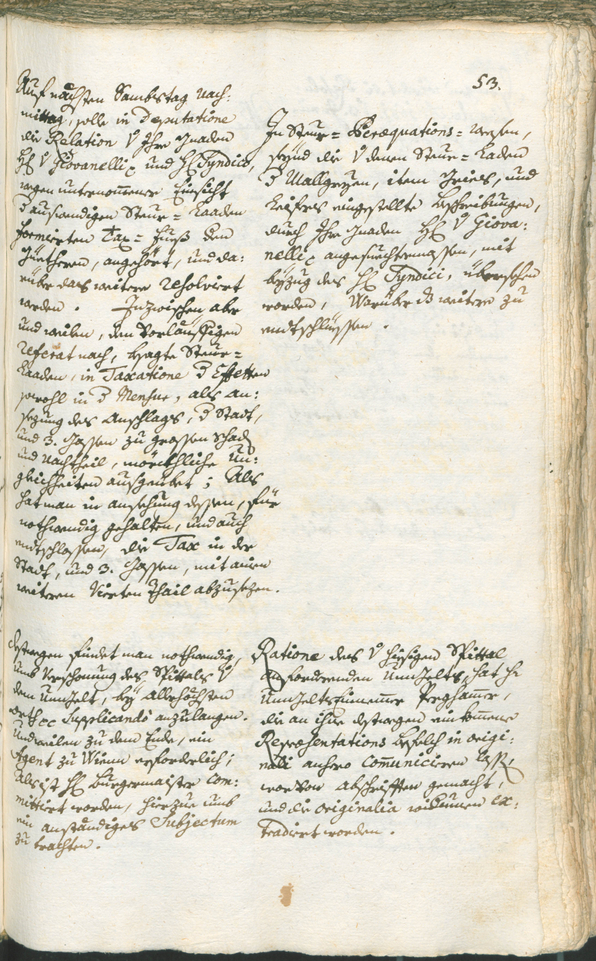 53.
Auf nächsten Sambstag nach:
mittag, solle in Deputatione
die Relation V Ihro Gnaden
H: V Giovanelli, und H: Syndico,
wegen unternommener Einsicht
d auswendigen Steur= Laaden
formierten Tax= Fueß dem
angehört, und da:
rüber das weitere resolvirt
werden. Inzwischen aber
und weilen, dem Vorläuffigen
referat nach, besagte Steur=
Laaden, in Taxatione d Effetten
sowohl in d Mensur, als an:
sezung des Anschlags, d Statt,
und 3. Gassen zu grossen Schad
und Nachtheil, mörckhliche Un:
gleichheiten ausgeübet; Als
hat man in ansehung dessen, für
nothwendig gehalten, und auch
entschlossen, die Tax in der
Statt, und 3. Gassen, mit ainen
weiteren Vierten Thail abzusezen.
In Steur= Peræquations= wesen,
seynd die V denen Steur= Laden
d Wallgreyen, item Gries, und
Leifers eingestellte beschreibungen,
durch Ihro Gnaden H: V Giova:
nelli, angesuechtermassen, mit
beyzug des H: Syndici, übersehen
worden, Warüber d weitere zu
entschliessen.
destwegen findet man nothwendig,
umb Verschonung des Spittals V
dem Umgelt, bey allerhöchsten
orth Supplicando anzulangen.
Und weilen zu dem Ende, ein
Agent zu Wienn erforderlich;
Als ist H: Burgermaister Com:
mittirt worden, hierzue umb
ein anständiges Subjectum
zu trachten.
Ratione des V hiesigen Spittal
anfordrenden Umgelts, hat H:
Umgelts
die an ihne destwegen einkomene
Repræsentations befelch in origi:
nali anhero comuniciren lass,
worvon abschrifften gemacht,
und die originalia widerumen ex:
tradirt worden.